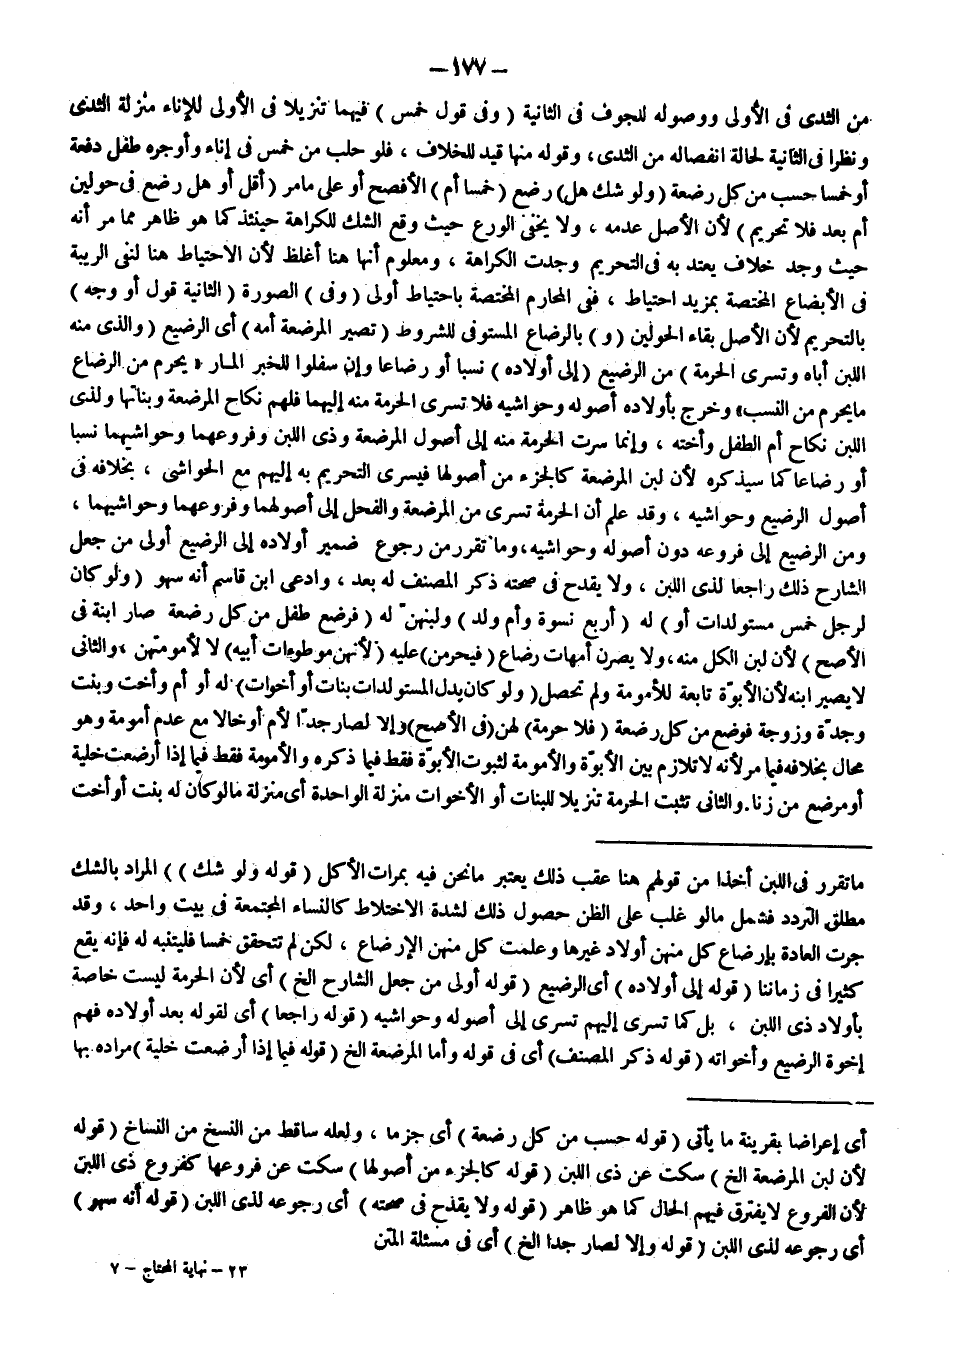 - ١٧٧ -
من الثدى فى الأولى ووصوله للجوف فى الثانية ( وفى قول خمس ) فيهما تنزيلا فى الأولى للإناء منزلة الثدى
ونظرا فى الثانية لحالة انفصاله من الثدى ، وقوله منها قيد للخلاف ، فلو حلب من خمس فى إناء وأوجره طفل دفعة
أو خمسا حسب من كل رضعة ( ولو شك هل) رضع ( خمسا أم ) الأفصح أو على مامر ( أقل أو هل رضع فى حولين
أم بعد فلا تحريم ) لأن الأصل عدمه ، ولا يخفى الورع حيث وقع الشك للكراهة حينئذ كما هو ظاهر مما مر أنه
حيث وجد خلاف يعتد به فى التحريم وجدت الكراهة ، ومعلوم أنها هنا أغلظ لأن الاحتياط هنا لنفى الريبة
فى الأبضاع المختصة بمزيد احتياط ، ففى المحارم المختصة باحتياط أولى ( وفى ) الصورة ( الثانية قول أو وجه )
بالتحريم لأن الأصل بقاء الحولين ( و ) بالرضاع المستوفى للشروط ( تصير المرضعة أمه ) أى الرضيع ( والذى منه
اللبن أباه وتسرى الحرمة ) من الرضيع ( إلى أولاده ) نسبا أو رضاعا وإن سفلوا للخبر المار « يحرم من الرضاع
مايحرم من النسب» وخرج بأولاده أصوله وحواشيه فلا تسرى الحرمة منه إليهما فلهم نكاح المرضعة وبناتها ولذى
اللبن نكاح أم الطفل وأخته ، وإنما سرت الحرمة منه إلى أصول المرضعة وذى اللبن وفروعهما وحواشيهما نسبا
أو رضاعا كما سيذكره لأن لبن المرضعة كالجزء من أصولها فيسرى التحريم به إليهم مع الحواشى ، بخلافه فى
أصول الرضيع وحواشيه ، وقد علم أن الحرمة تسرى من المرضعة والفحل إلى أصولهما وفروعهما وحواشيهما ،
ومن الرضيع إلى فروعه دون أصوله وحواشيه، وما تقرر من رجوع ضمير أولاده إلى الرضيع أولى من جعل
الشارح ذلك راجعا لذى اللبن ، ولا يقدح فى صحته ذكر المصنف له بعد ، وادعى ابن قاسم أنه سهو ( ولو كان
لرجل خمس مستولدات أو ) له ( أربع نسوة وأم ولد ) ولبنهن له ( فرضع طفل من كل رضعة صار ابنة فى
الأصح ) لأن لبن الكل منه، ولا يصرن أمهات رضاع ( فيحرمن) عليه ( لأنهن موطوءات أبيه) لا لأمومتهن ، والثانى
لا يصير ابنه لأن الأبوّة تابعة للأمومة ولم تحصل ( ولو كان بدل المستولدات بنات أو أخوات) له أو أم وأخت وبنت
وجدّة وزوجة فوضع من كل رضعة ( فلا حرمة) لهن (فى الأصح) وإلا لصار جدّا لأم أو خالا مع عدم أمومة وهو
محال بخلافه فيما مر لأنه لا تلازم بين الأبوّة والأمومة لثبوت الأبوّة فقط فيما ذكره والأمومة فقط فيما إذا أرضعت خلية
أو مرضع من زنا. والثانى تثبت الحرمة تنزيلا للبنات أو الأخوات منزلة الواحدة أى منزلة مالو كان له بنت أو أخت
ماتقرر فى اللبن أخذا من قولهم هنا عقب ذلك يعتبر مانحن فيه بمرات الأكل ( قوله ولو شك ) ) المراد بالشك
مطلق التردد فشمل مالو غلب على الظن حصول ذلك لشدة الاختلاط كالنساء المجتمعة فى بيت واحد ، وقد
جرت العادة بإرضاع كل منهن أولاد غيرها وعلمت كل منهن الإرضاع ، لكن لم تتحقق خمسا فليتنبه له فإنه يقع
كثيرا فى زماننا ( قوله إلى أولاده ) أى الرضيع ( قوله أولى من جعل الشارح الخ ) أى لأن الحرمة ليست خاصة
بأولاد ذى اللبن ، بل كما تسرى إليهم تسرى إلى أصوله وحواشيه ( قوله راجعا ) أى لقوله بعد أولاده فهم
إخوة الرضيع وأخواته ( قوله ذكر المصنف) أى فى قوله وأما المرضعة الخ ( قوله فيما إذا أرضعت خلية ) مراده بها
أى إعراضا بقرينة ما يأتى ( قوله حسب من كل رضعة ) أى جزما ، ولعله ساقط من النسخ من النساخ ( قوله
لأن لبن المرضعة الخ ) سكت عن ذى اللبن ( قوله كالجزء من أصولها ) سكت عن فروعها كفروع ذى اللبن
لأن الفروع لا يفترق فيهم الحال كما هو ظاهر ( قوله ولا يقدح فى صحته ) أى رجوعه لذى اللبن ( قوله أنه سهو )
أى رجوعه لذى اللبن ( قوله وإلا لصار جدا الخ ) أى فى مسئلة المتن
٢٣ - نهاية المحتاج - ٧